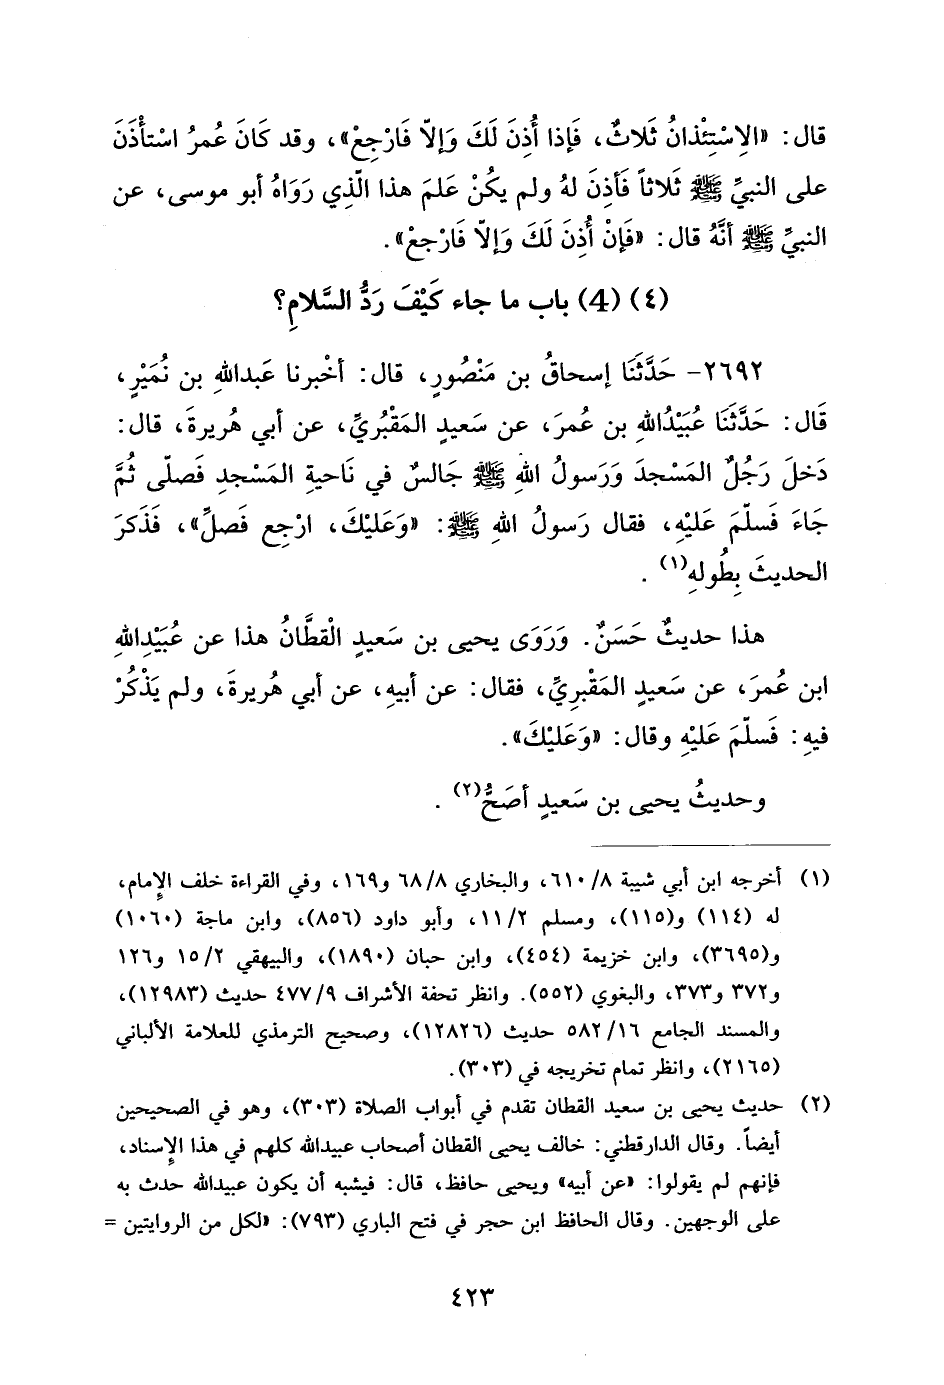 قال: «الِاسْتِئْذانُ ثَلاثٌ، فَإذا أُذِنَ لَكَ وَإلاّ فَارْجِعْ»، وقد كَانَ عُمرُ اسْتأْذَنَ
على النبيِّ ﷺ ثَلاثاً فَأذِنَ لهُ ولم يكُنْ عَلمَ هذا الّذِي رَوَاهُ أبو موسى، عن
النبيِّ ﷺ أنَّهُ قال: «فَإنْ أُذِنَ لَكَ وَإلاّ فَارْجعْ».
(٤) (4) باب ما جاء كَيْفَ رَدُّ السَّلامِ؟
٢٦٩٢- حَدَّثَنَا إسحاقُ بن مَنْصُورٍ، قال: أخْبرنا عَبداللهِ بن نُمَيْرٍ،
قَال: حَدَّثَنَا عُبَيْدُاللهِ بن عُمرَ، عن سَعيدٍ المَقْبُريِّ، عن أبي هُريرةَ، قال:
دَخلَ رَجُلٌ المَسْجدَ وَرَسولُ اللهِ ﷺ جَالسٌ في نَاحيةِ المَسْجدِ فَصلّى ثُمَّ
جَاءَ فَسلّمَ عَليْهِ، فقال رَسولُ اللهِ ﷺ: «وَعَليْكَ، ارْجِع فَصلِّ»، فَذَكرَ
الحديثَ بِطُولهِ(١) .
هذا حديثٌ حَسَنٌ. وَرَوَى يحيى بن سَعيدٍ الْقطَّانُ هذا عن عُبَيْدِاللهِ
ابن عُمرَ، عن سَعيدٍ المَقْبرِيِّ، فقال: عن أبيهِ، عن أبي هُريرةَ، ولم يَذْكُرْ
فيهِ: فَسلّمَ عَليْهِ وقال: «وَعَليْكَ».
وحديثُ يحيى بن سَعيدٍ أصَحُّ(٢) .
(١) أخرجه ابن أبي شيبة ٨/ ٦١٠، والبخاري ٨/ ٦٨ و١٦٩، وفي القراءة خلف الإمام،
له (١١٤) و(١١٥)، ومسلم ٢/ ١١، وأبو داود (٨٥٦)، وابن ماجة (١٠٦٠)
و(٣٦٩٥)، وابن خزيمة (٤٥٤)، وابن حبان (١٨٩٠)، والبيهقي ٢/ ١٥ و١٢٦
و٣٧٢ و٣٧٣، والبغوي (٥٥٢). وانظر تحفة الأشراف ٩/ ٤٧٧ حديث (١٢٩٨٣)،
والمسند الجامع ١٦/ ٥٨٢ حديث (١٢٨٢٦)، وصحيح الترمذي للعلامة الألباني
(٢١٦٥)، وانظر تمام تخريجه في (٣٠٣).
(٢) حديث يحيى بن سعيد القطان تقدم في أبواب الصلاة (٣٠٣)، وهو في الصحيحين
أيضاً. وقال الدارقطني: خالف يحيى القطان أصحاب عبيدالله كلهم في هذا الإسناد،
فإنهم لم يقولوا: «عن أبيه» ويحيى حافظ، قال: فيشبه أن يكون عبيدالله حدث به
على الوجهين. وقال الحافظ ابن حجر في فتح الباري (٧٩٣): «لكل من الروايتين =
٤٢٣